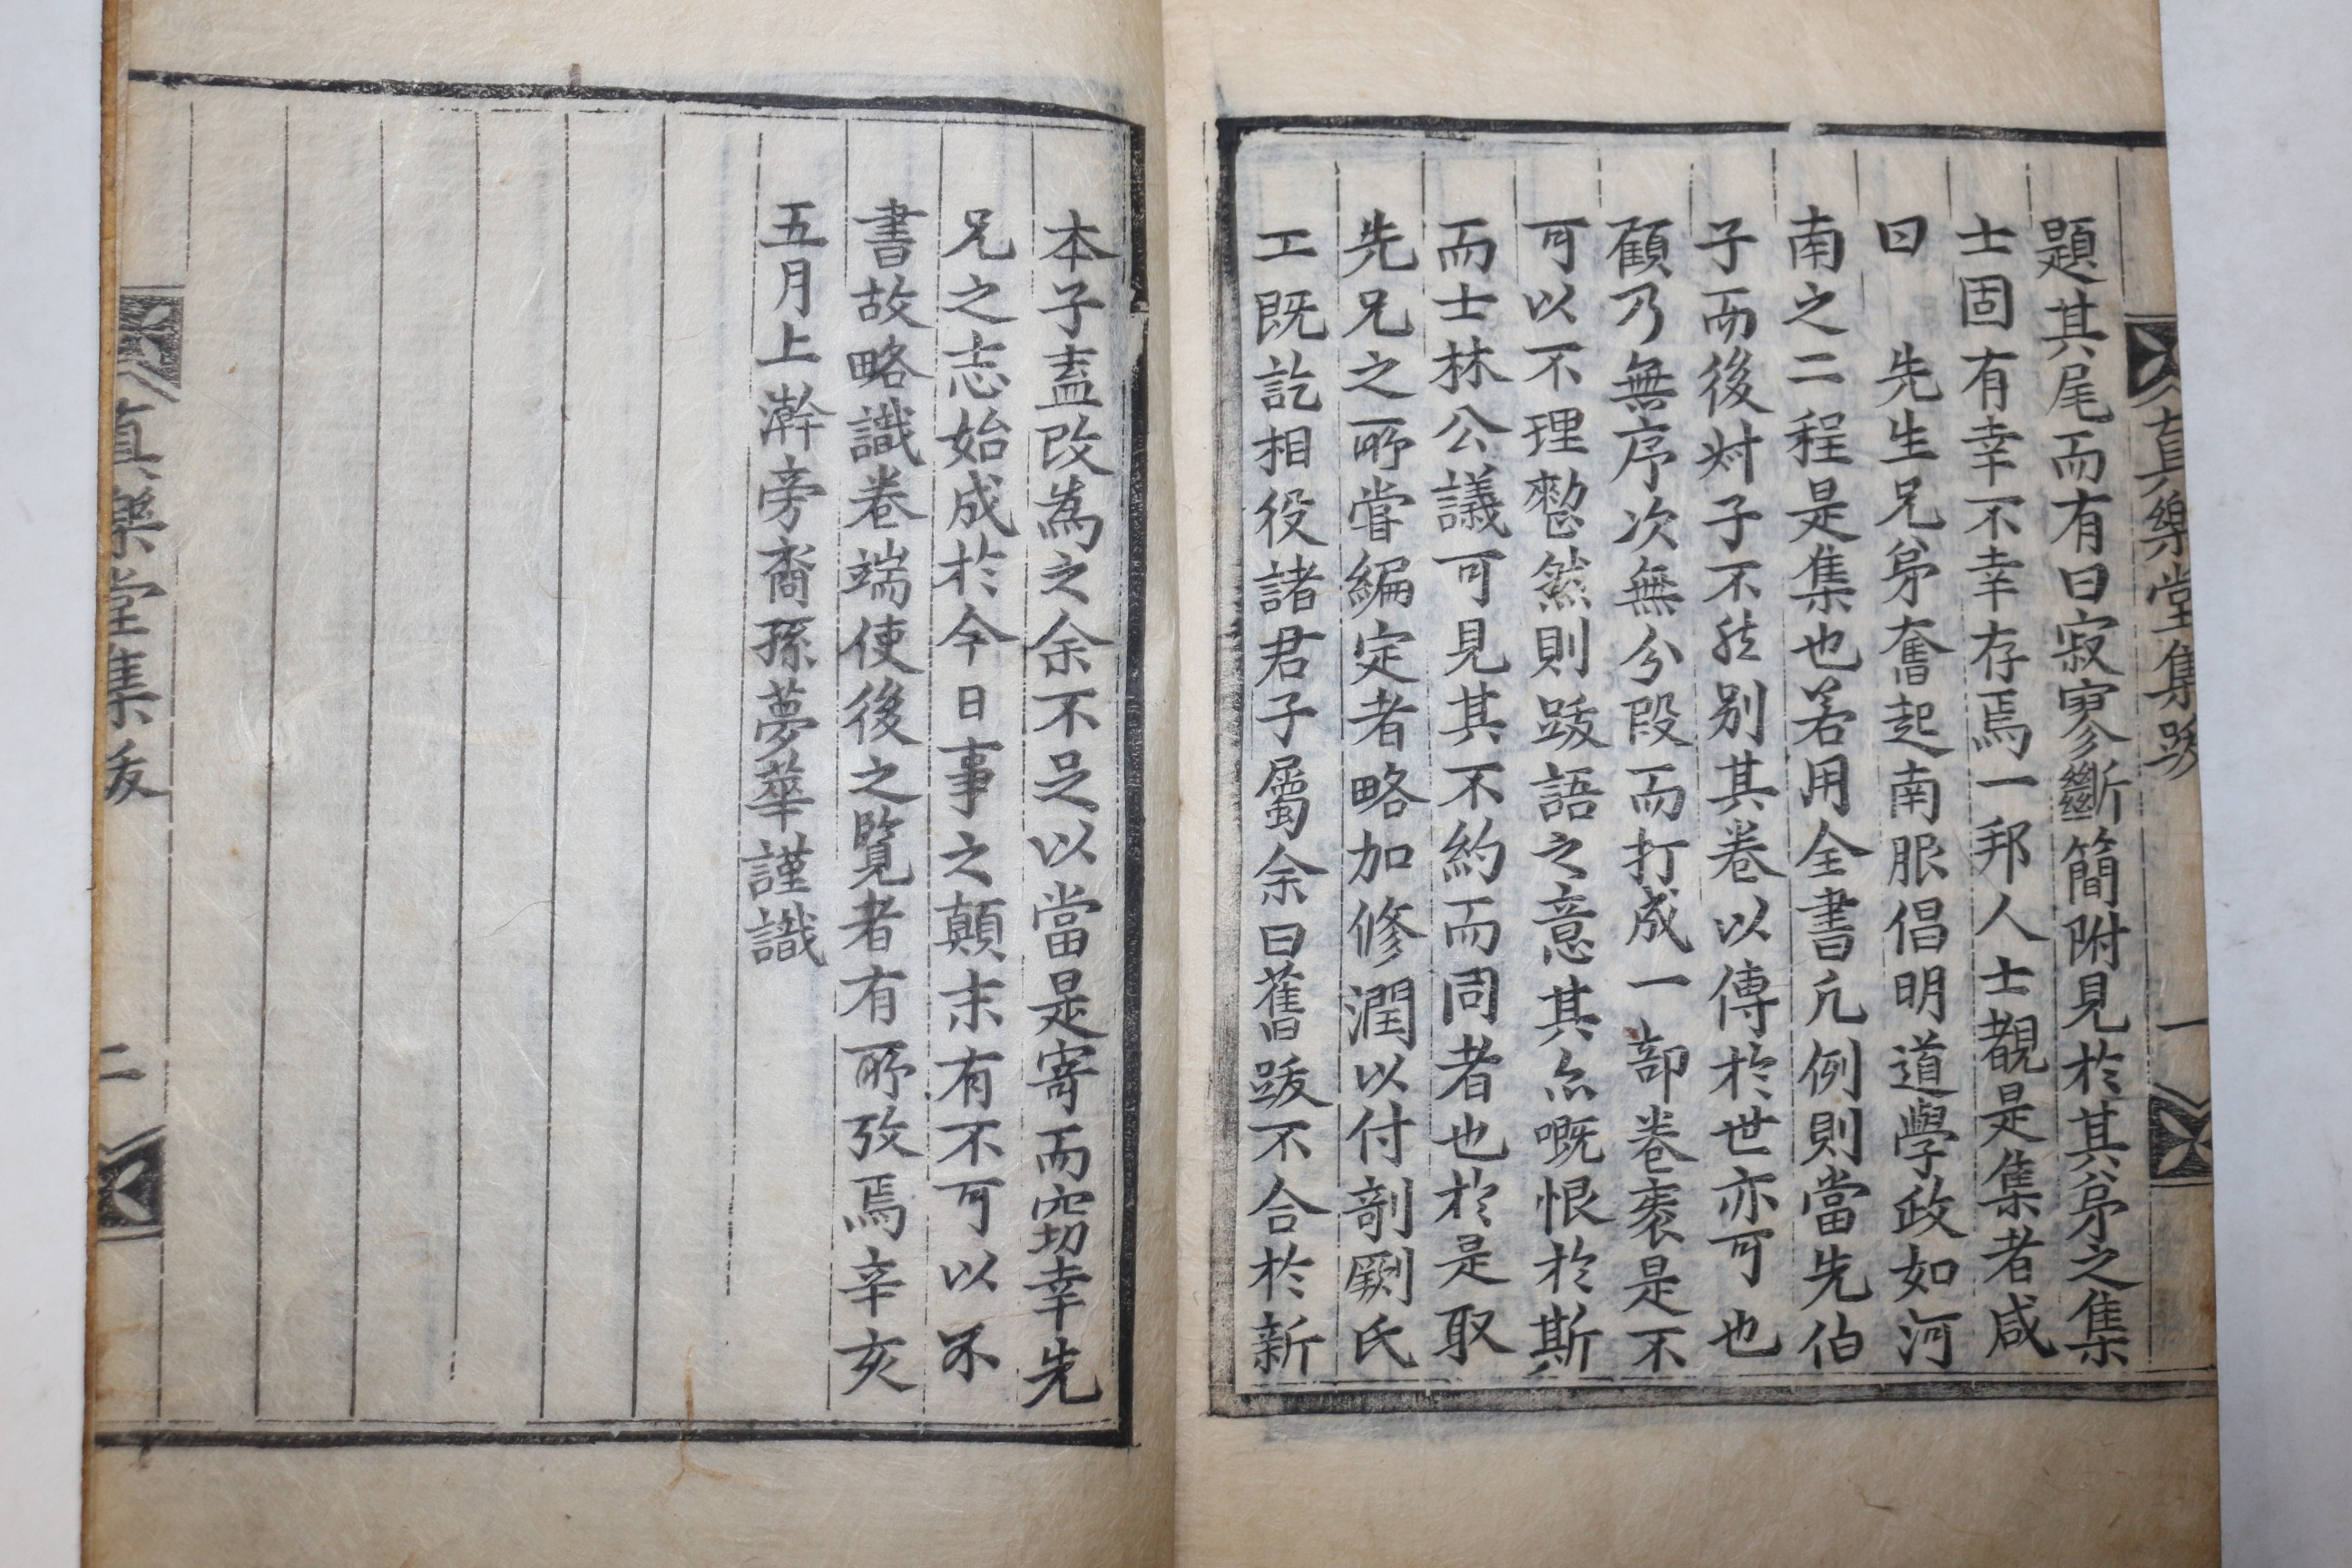 真樂堂集跋
一
題其尾而有曰寂寥斷簡附見於其弟之集
士固有幸不幸存焉一邦人士覩是集者咸
曰 先生兄弟奮起南服倡明道學政如河
南之二程是集也若用全書凡例則當先伯
子而後叔子不然別其卷以傳於世亦可也
顧乃無序次無分段而打成一部卷袠是不
可以不理整然則跋語之意其亦嘅恨於斯
而士林公議可見其不約而同者也於是取
先兄之所嘗編定者略加修潤以付剞劂氏
工既訖相役諸君子屬余曰舊跋不合於新
本子盍改為之余不足以當是寄而窃幸先
兄之志始成於今日事之顛末有不可以不
書故略識卷端使後之覽者有所攷焉辛亥
五月上澣旁裔孫夢華謹識
真樂堂集跋
二